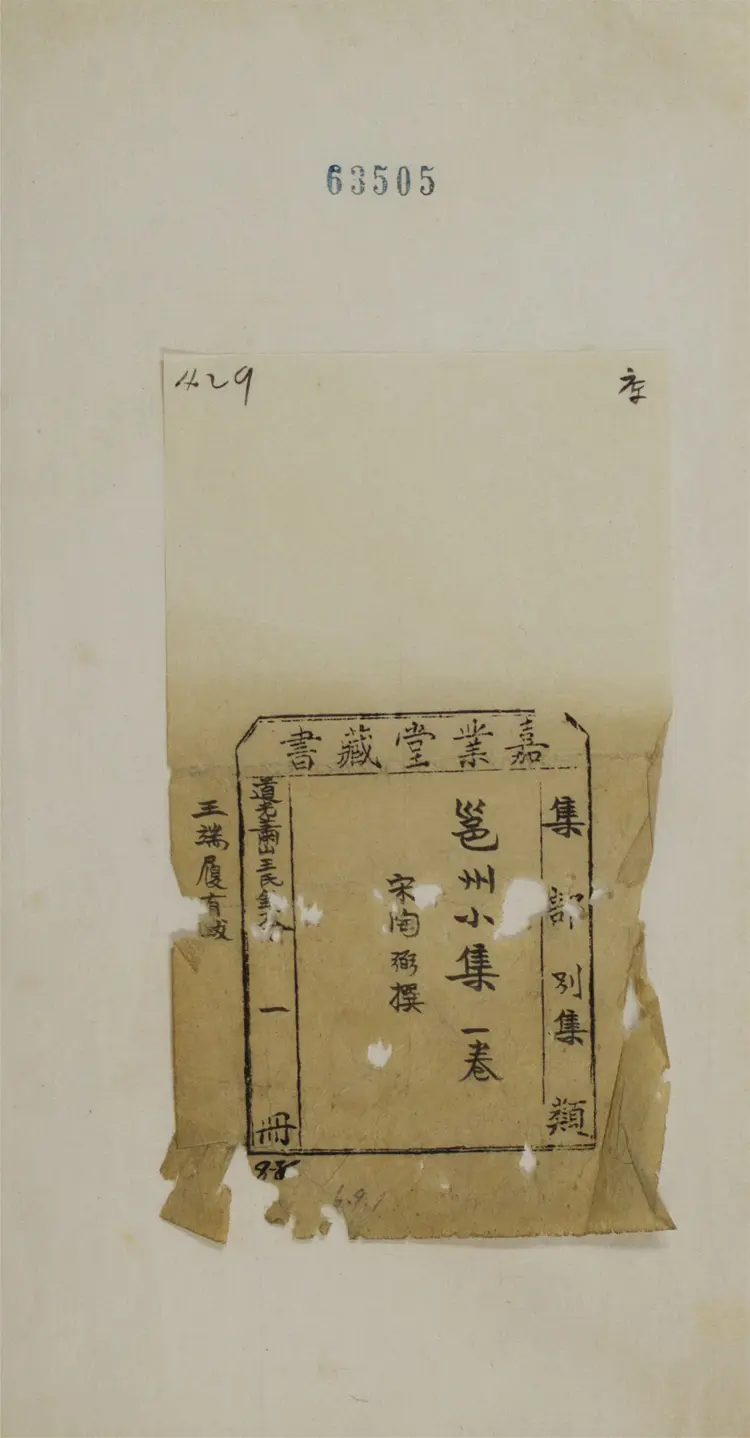 63505
429
嘉業堂藏書
集部別集類
邕州小集 一卷
宋陶弼撰
道光蕭山王氏鈔本
一冊
王端履有跋
6.9.1